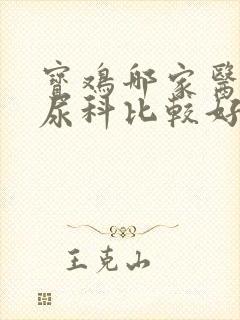 寶鷄那家醫
尿科比較好
王克山